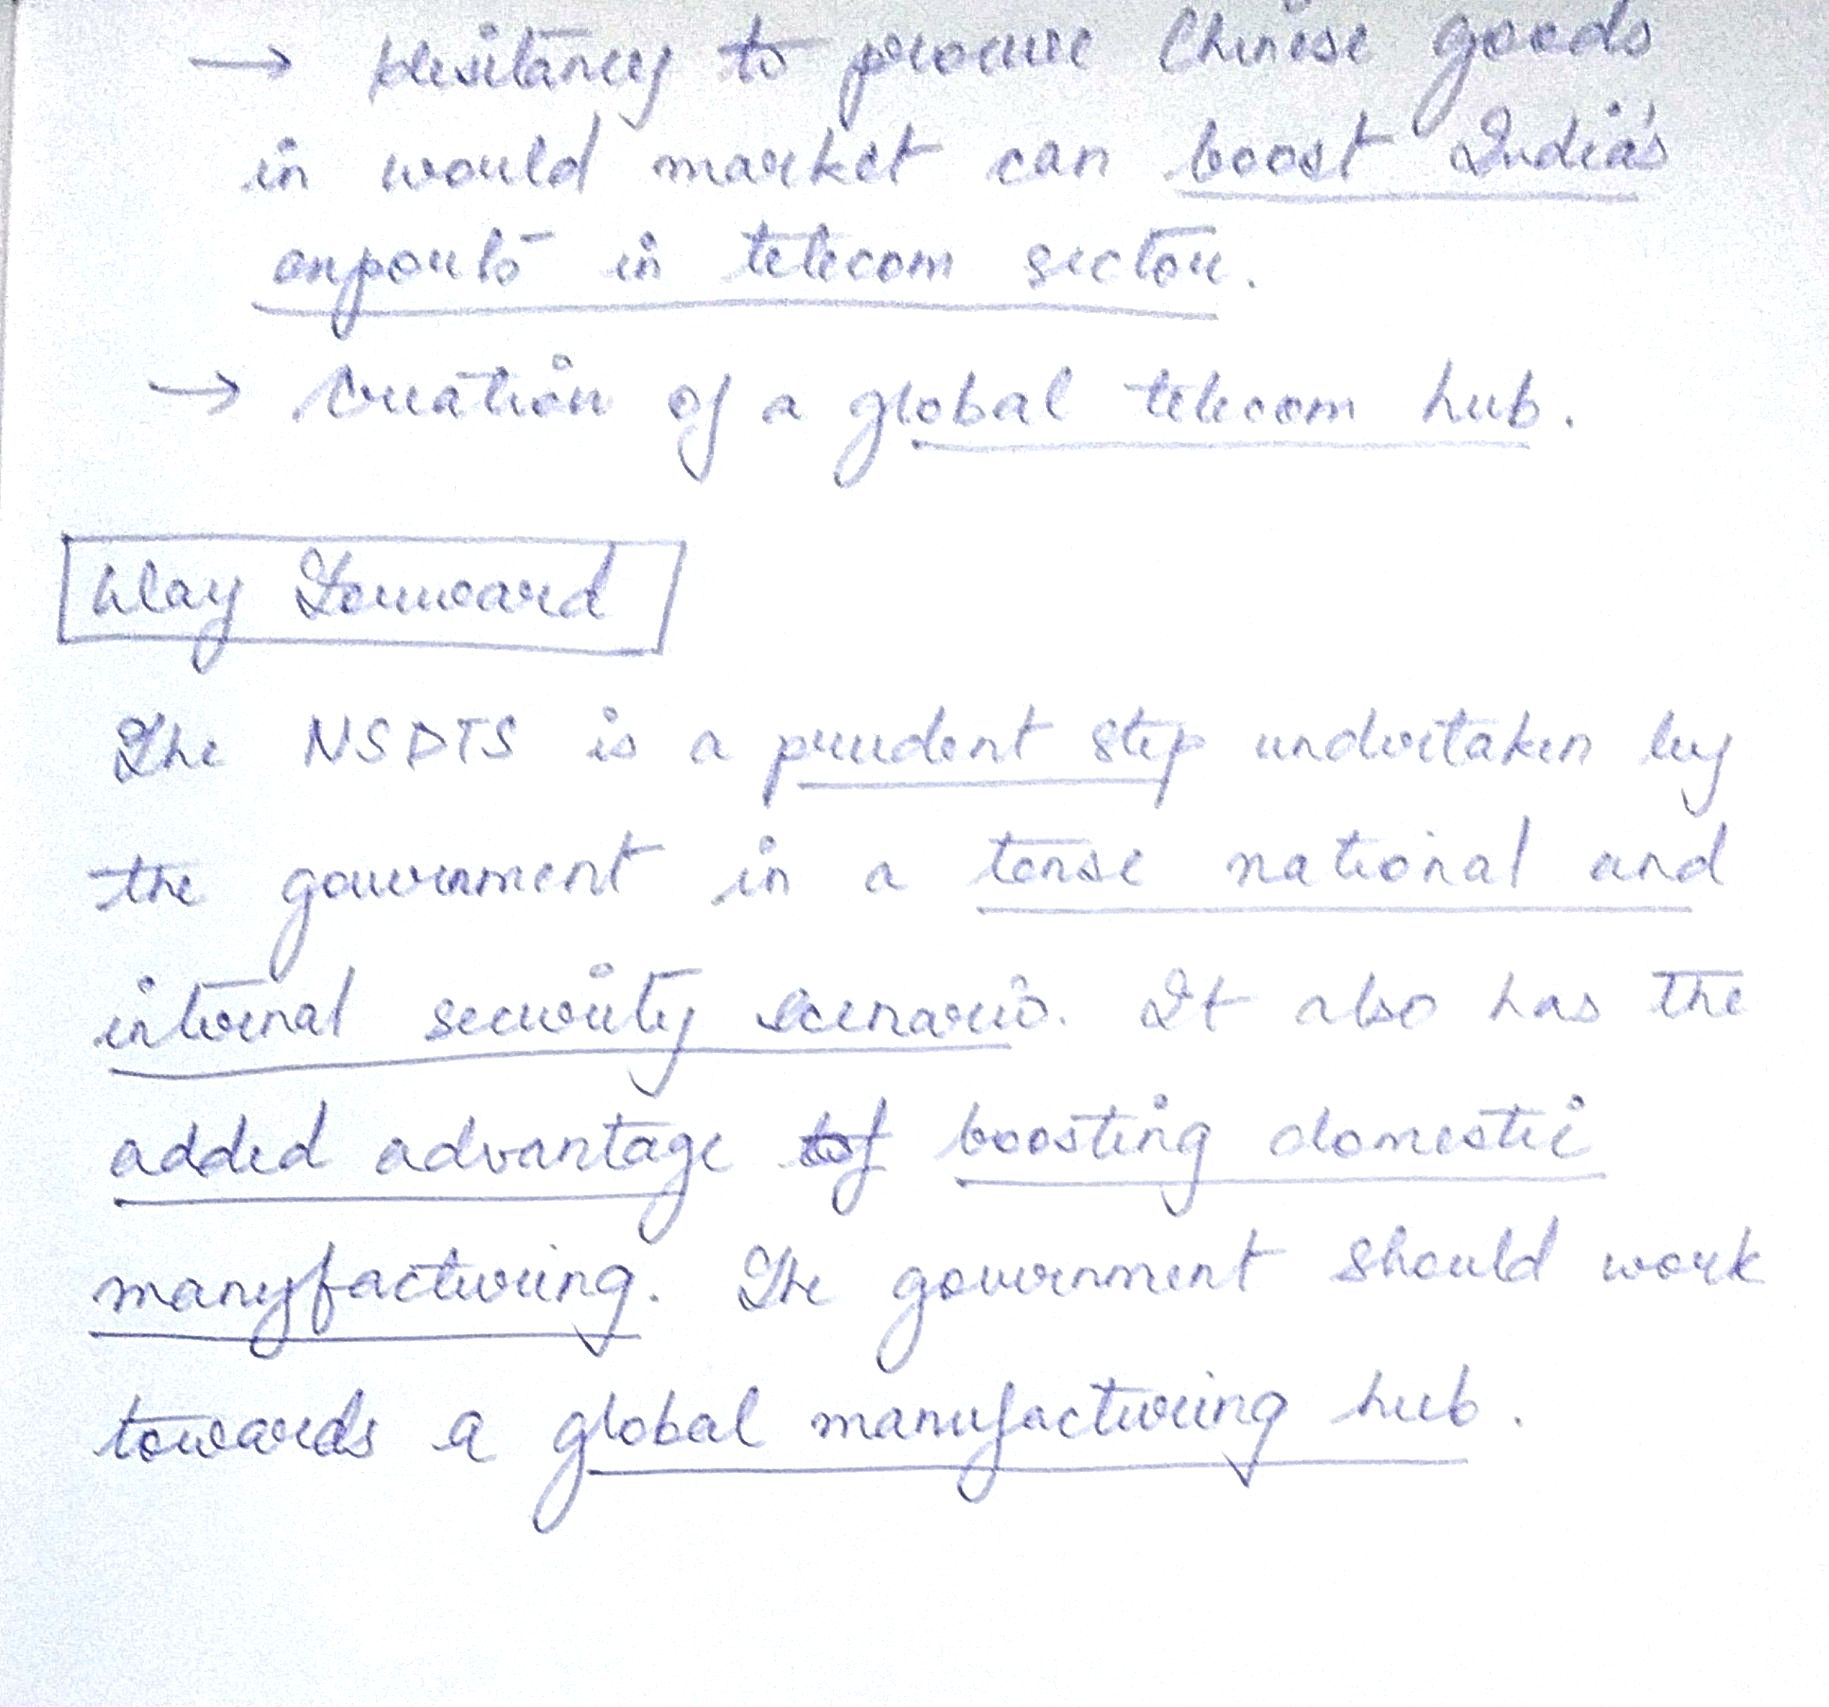 → Hesitancy to procure Chinese goods
in world market can boost India's
exports in telecom sector.
→ Creation of a global telecom hub.
Way Forward
The NSDTS is a prudent step undertaken by
the government in a tense national and
internal security scenario. It also has the
added advantage of boosting domestic
manufacturing. The government should work
towards a global manufacturing hub.